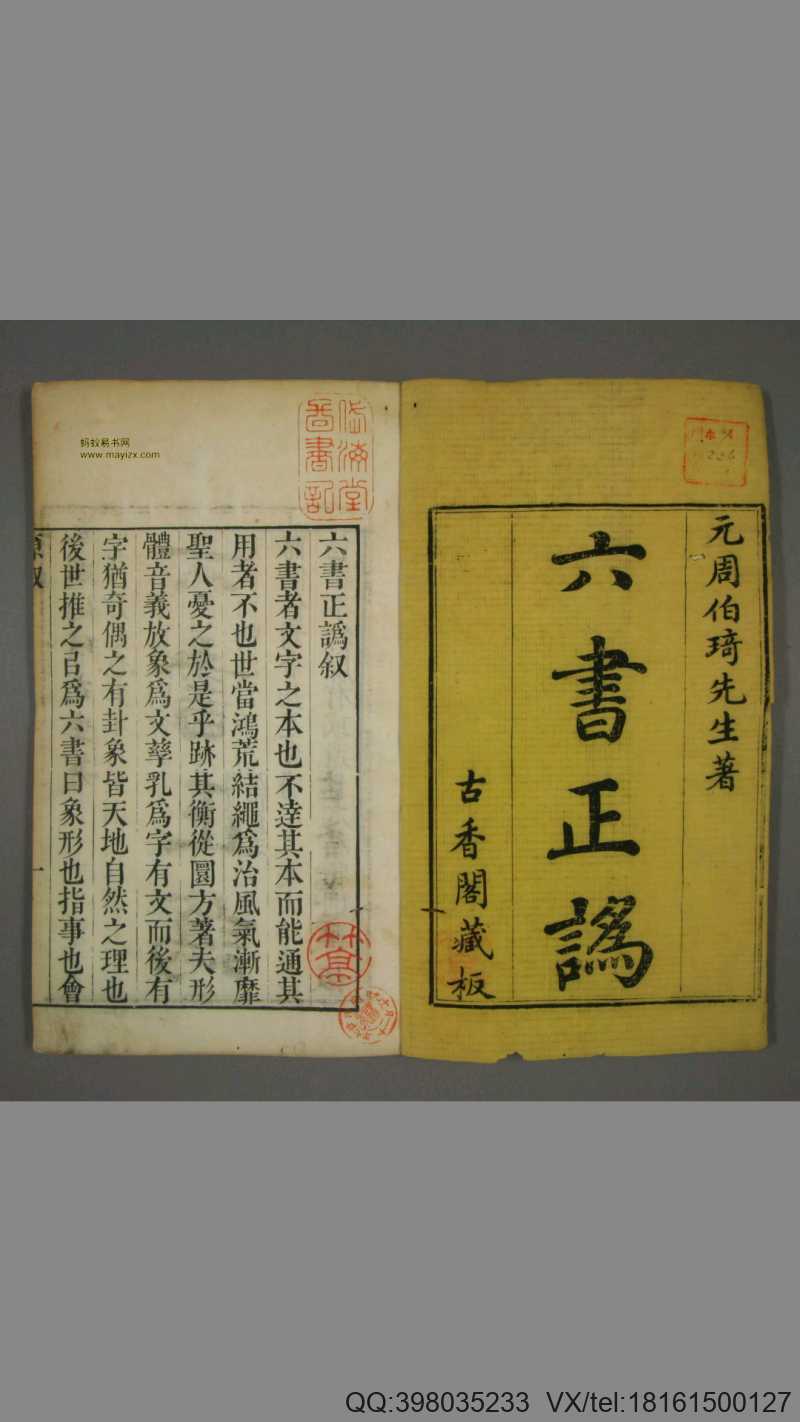 元周伯琦先生著
六書正譌
古香閣藏板
六書正譌叙
六書者文字之本也不達其本而能通其
用者不也世當鴻荒結繩爲治風氣漸靡
聖人憂之於是乎跡其衡從圜方著夫形
體音義放象爲文孳乳爲字有文而後有
字猶奇偶之有卦象皆天地自然之理也
後世推之㠯爲六書曰象形也指事也會
蚂蚁易书网
www.mayizx.com
QQ:398035233 VX/tel:18161500127